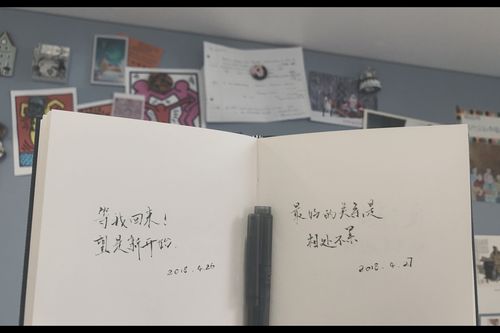 等我回来!
望是新开始.
2018.4.26
最好的关系是
相处不累
2018.4.27